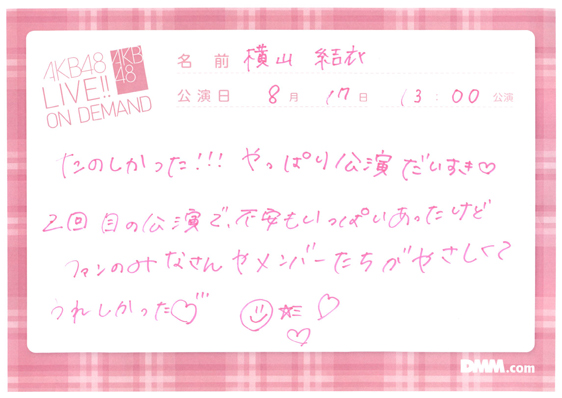 AKB48
LIVE!!
ON DEMAND
AKB
48
名 前 横山 結衣
公演日 8月 17日 13:00 公演
たのしかった!!! やっぱり公演だいすき♡
2回目の公演で、不安もいっぱいあったけど
ファンのみなさんやメンバーたちがやさしくて
うれしかった♡
DMM.com